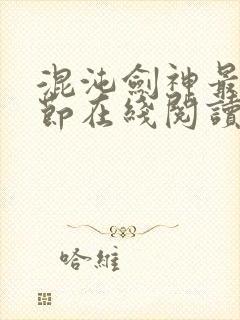 混沌劍神最
節在綫閱讀
哈維